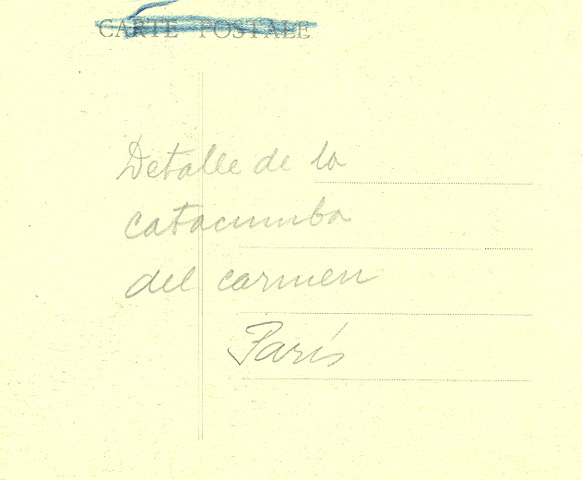 CARTE POSTALE
Detalle de la
catacumba
del carmen
París